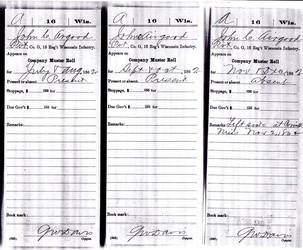 A 16 Wis.
John C. Osgood
Pvt, Co. G, 16 Reg't Wisconsin Infantry.
Appears on
Company Muster Roll
for July & Aug, 1862
Present or absent Present
Stoppage, $ 100 for
Due Gov't $ 100 for
Remarks:
Book mark:
G W Davis
(358) Copyist.
A 16 Wis.
John Osgood
Pvt, Co. G, 16 Reg't Wisconsin Infantry.
Appears on
Company Muster Roll
for Sept & Oct, 1862
Present or absent Present
Stoppage, $ 100 for
Due Gov't $ 100 for
Remarks:
Book mark:
G W Davis
(358) Copyist.
A 16 Wis.
John C. Osgood
Pvt, Co. G, 16 Reg't Wisconsin Infantry.
Appears on
Company Muster Roll
for Nov & Dec, 1862
Present or absent Absent
Stoppage, $ 100 for
Due Gov't $ 100 for
Remarks: Left sick at
Miss Nov 2, 1862
Book mark:
G W Davis
(358) Copyist.